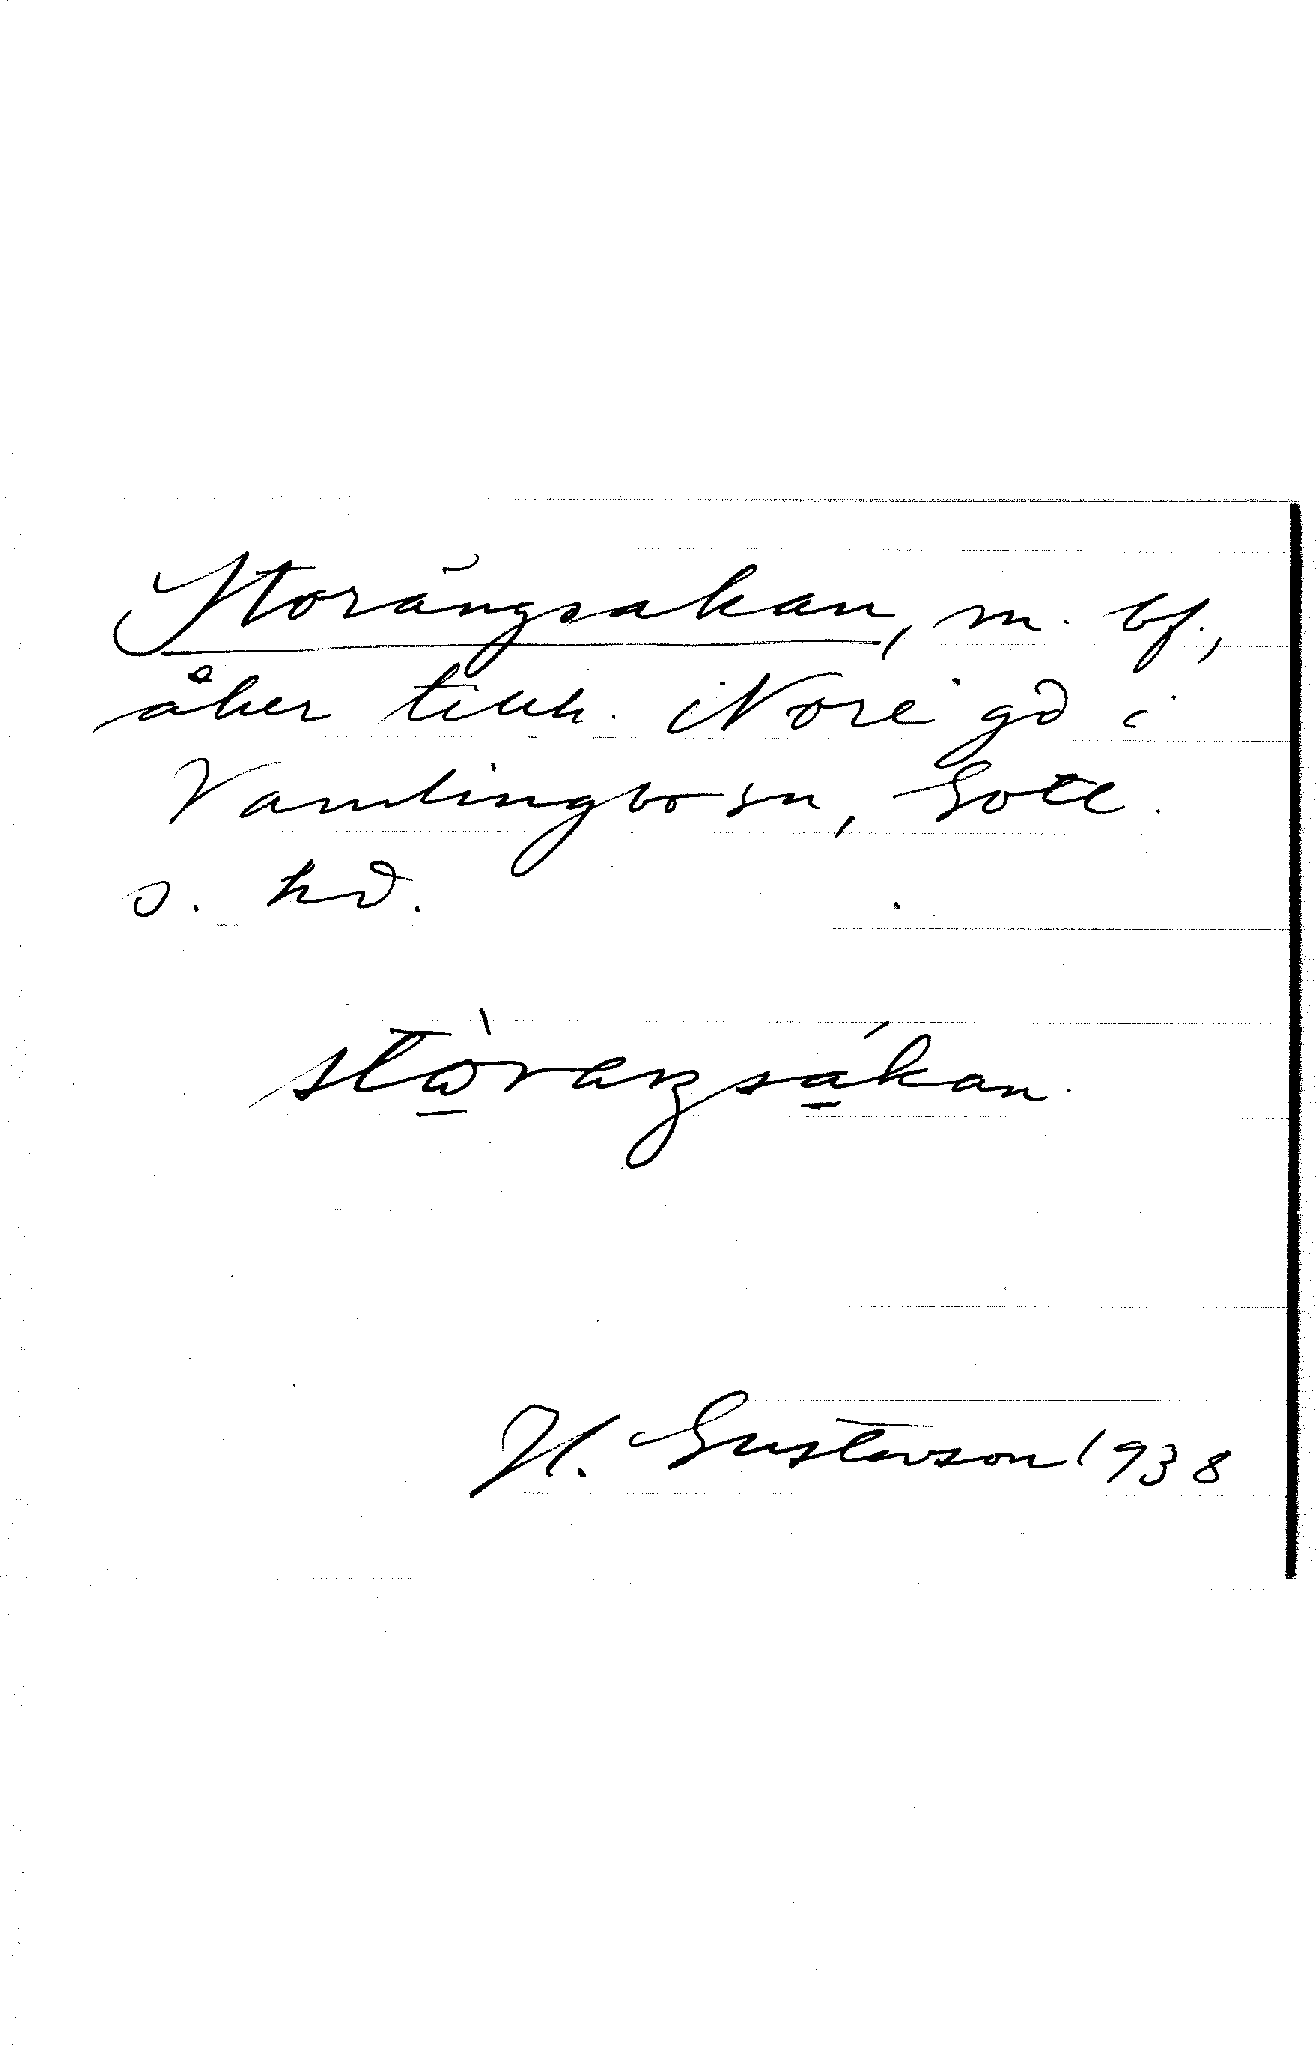 Storängsakan, m. bf.,
åker tillh. Nore gd i
Vamlingbo sn, Gotl.
s. hd.
stὼ̱raŋsá̱kan.
H. Gustavson 1938